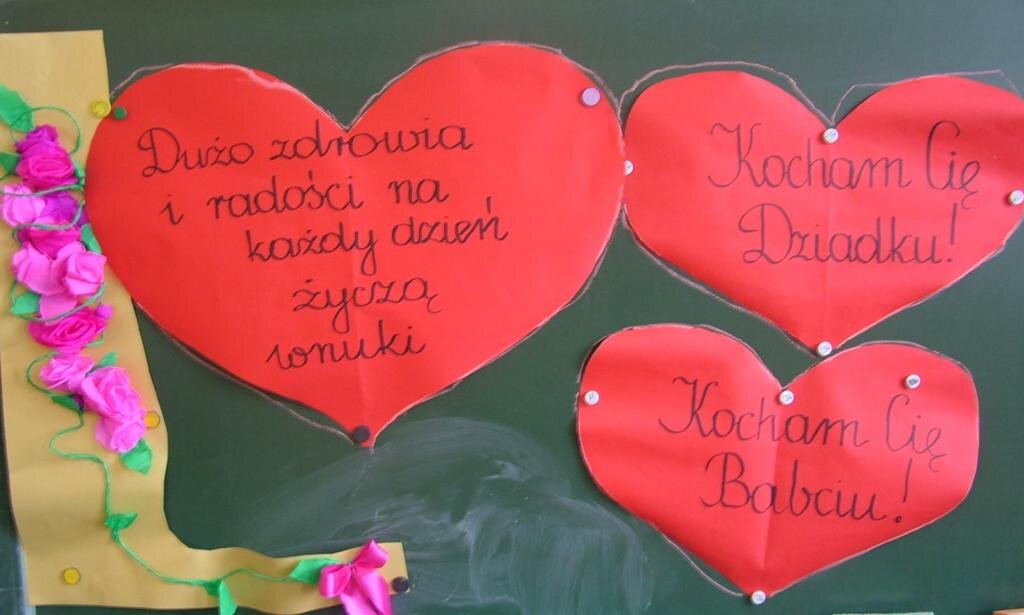 Dużo zdrowia
i radości na
każdy dzień
życzą
wnuki
Kocham Cię
Dziadku!
Kocham Cię
Babciu!